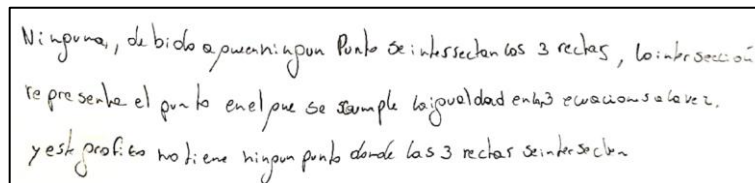 Ninguna, debido a que en ningun Punto se intersectan las 3 rectas, la intersección
representa el punto en el que se cumple la igualdad en las 3 ecuaciones a la vez.
y este grafico no tiene ningun punto donde las 3 rectas se intersecten